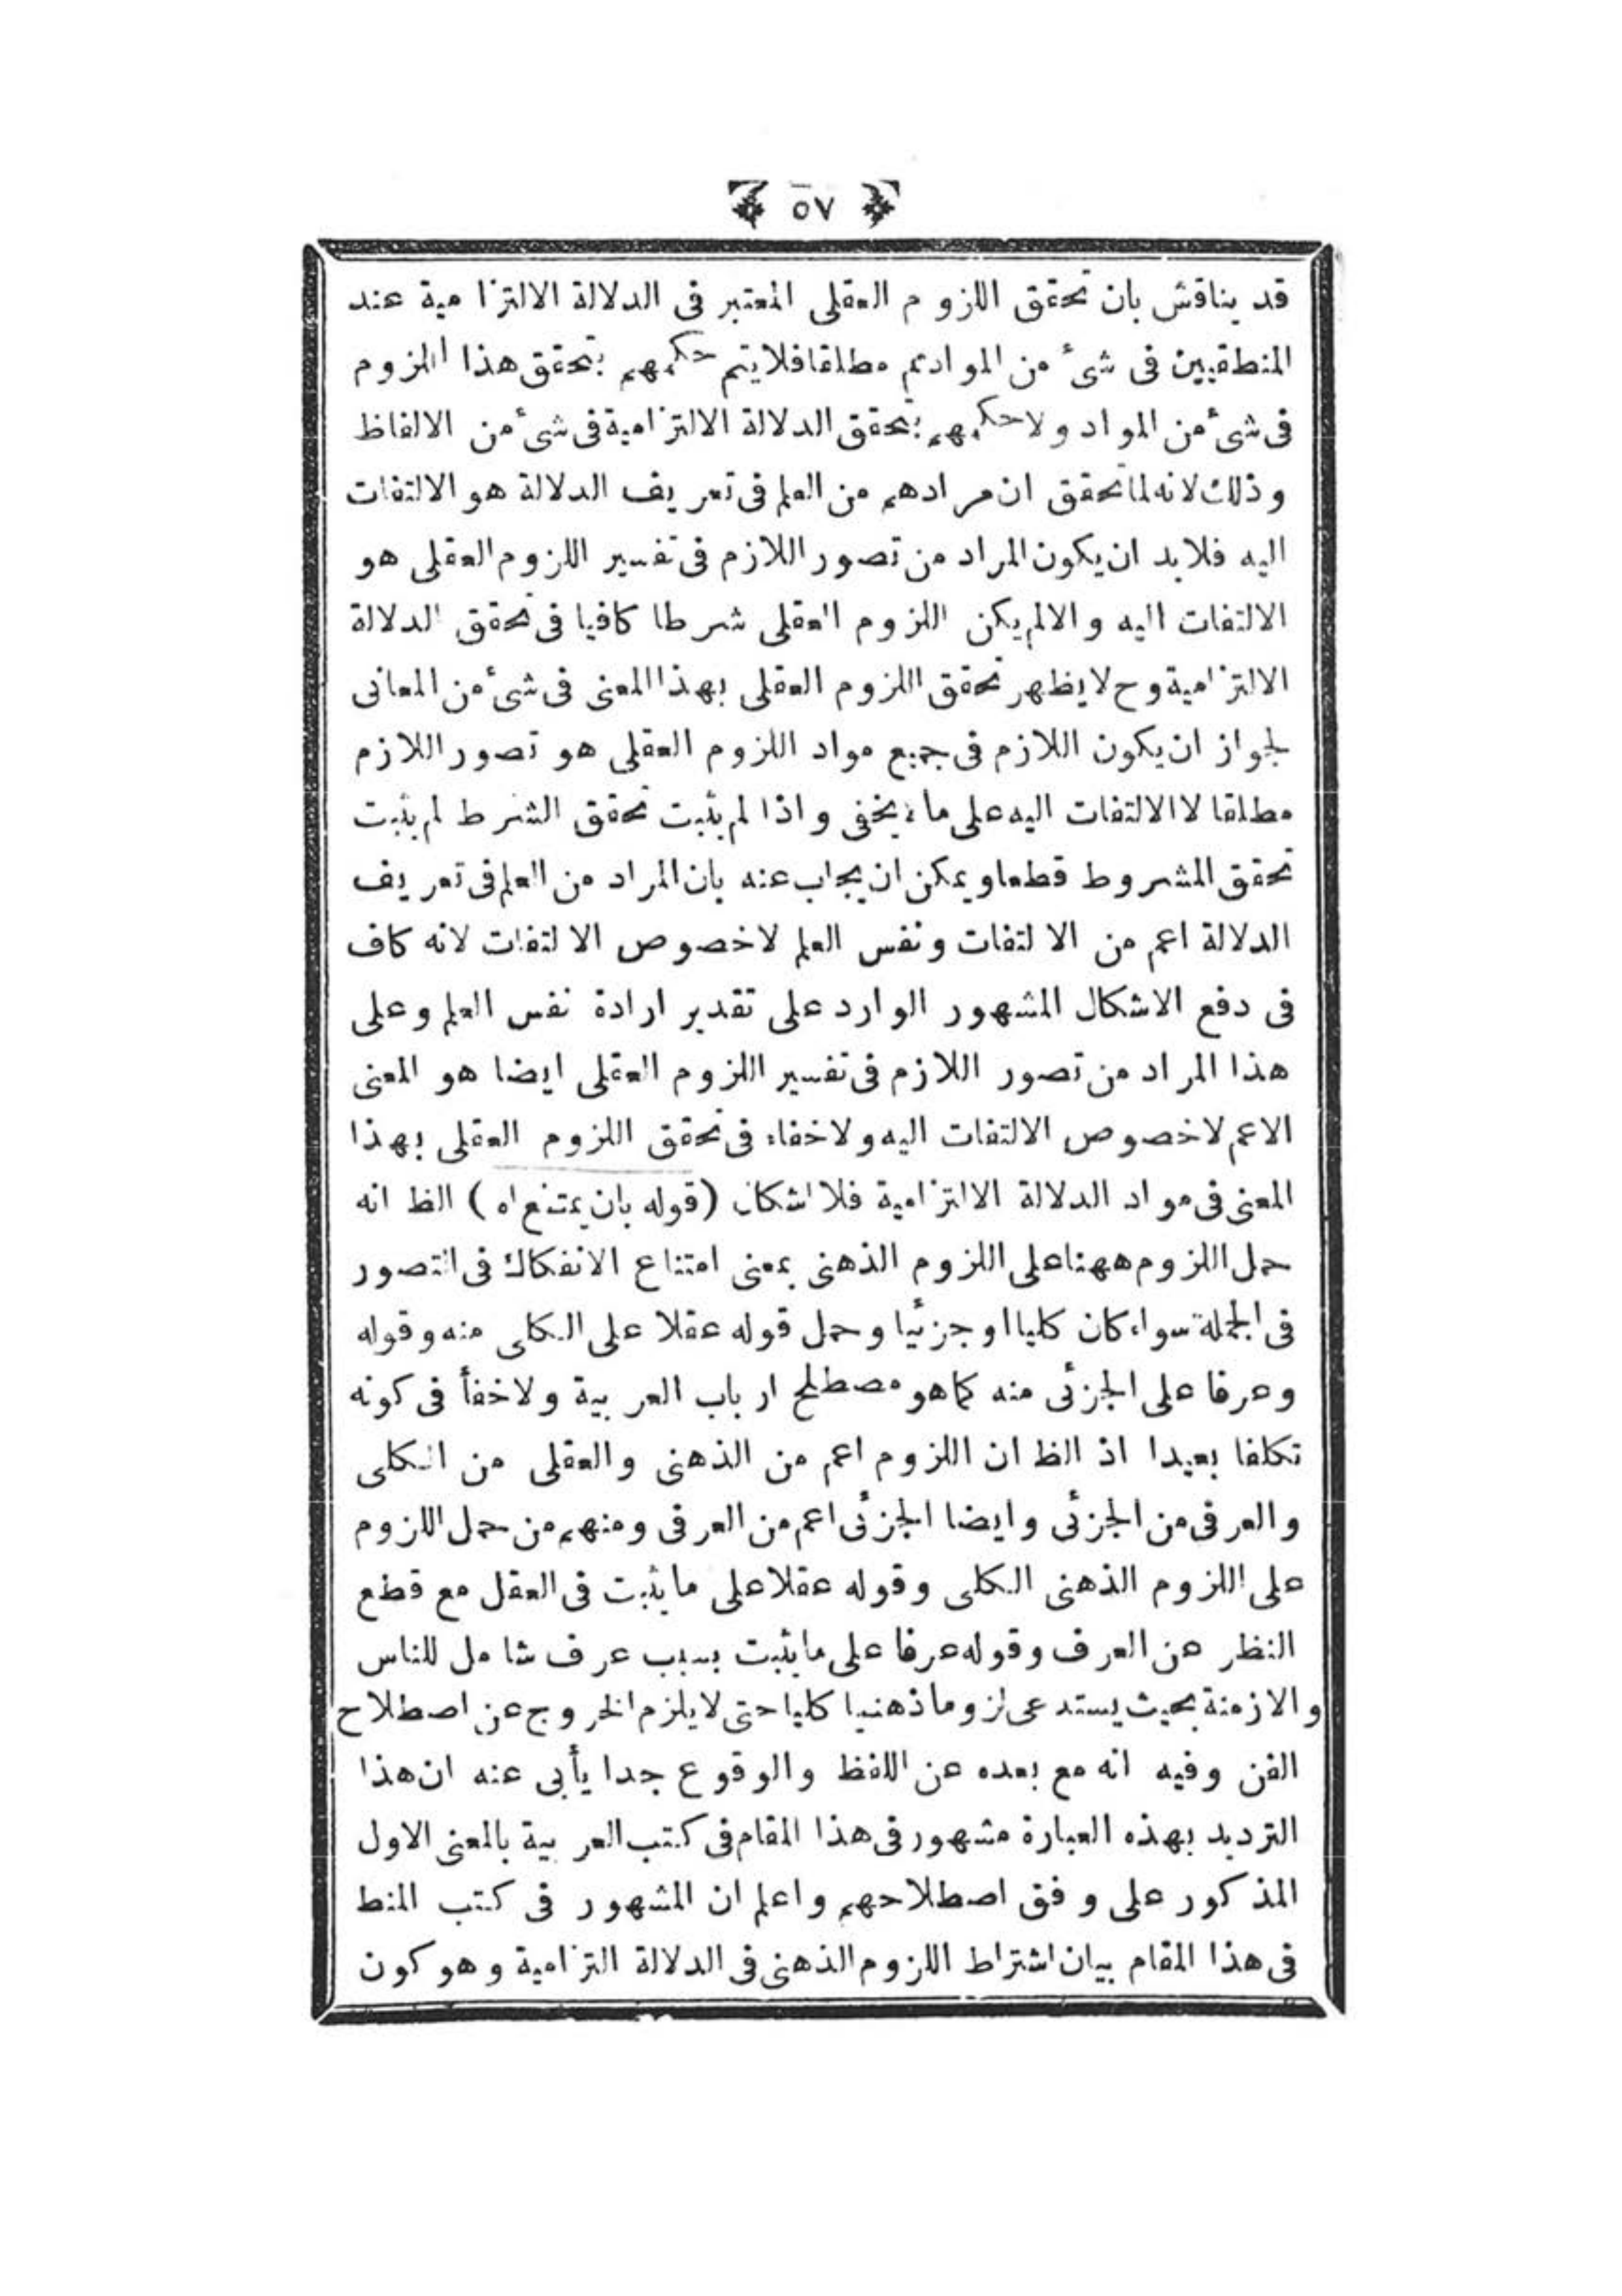 ٥٧
قد يناقش بان تحقق اللزوم العقلى المعتبر فى الدلالة الالتزامية عند
المنطقيين فى شئ من المواد تم مطلقا فلا يتم حكمهم بتحقق هذا اللزوم
فى شئ من المواد ولا حكمهم بتحقق الدلالة الالتزامية فى شئ من الالفاظ
وذلك لانه لما تحقق ان مرادهم من العلم فى تعريف الدلالة هو الالتفات
اليه فلا بد ان يكون المراد من تصور اللازم فى تفسير اللزوم العقلى هو
الالتفات اليه والا لم يكن اللزوم العقلى شرطا كافيا فى تحقق الدلالة
الالتزامية وح لا يظهر تحقق اللزوم العقلى بهذا المعنى فى شئ من المعانى
لجواز ان يكون اللازم فى جميع مواد اللزوم العقلى هو تصور اللازم
مطلقا لا الالتفات اليه على ما يخفى واذا لم يثبت تحقق الشرط لم يثبت
تحقق المشروط قطعا ويمكن ان يجاب عنه بان المراد من العلم فى تعريف
الدلالة اعم من الالتفات ونفس العلم لا خصوص الالتفات لانه كاف
فى دفع الاشكال المشهور الوارد على تقدير ارادة نفس العلم وعلى
هذا المراد من تصور اللازم فى تفسير اللزوم العقلى ايضا هو المعنى
الاعم لا خصوص الالتفات اليه ولا خفاء فى تحقق اللزوم العقلى بهذا
المعنى فى مواد الدلالة الالتزامية فلا اشكال (قوله بان يمتنع اه) الظ انه
حمل اللزوم ههنا على اللزوم الذهنى بمعنى امتناع الانفكاك فى التصور
فى الجملة سواء كان كليا او جزئيا وحمل قوله عقلا على الكلى منه وقوله
وعرفا على الجزئى منه كما هو مصطلح ارباب العربية ولا خفأ فى كونه
تكلفا بعيدا اذ الظ ان اللزوم اعم من الذهنى والعقلى من الكلى
والعرفى من الجزئى وايضا الجزئى اعم من العرفى ومنهم من حمل اللزوم
على اللزوم الذهنى الكلى وقوله عقلا على ما يثبت فى العقل مع قطع
النظر عن العرف وقوله عرفا على ما يثبت بسبب عرف شامل للناس
والازمنة بحيث يستدعى لزوما ذهنيا كليا حتى لا يلزم الخروج عن اصطلاح
الفن وفيه انه مع بعده عن اللفظ والوقوع جدا يأبى عنه ان هذا
الترديد بهذه العبارة مشهور فى هذا المقام فى كتب العربية بالمعنى الاول
المذكور على وفق اصطلاحهم واعلم ان المشهور فى كتب المنط
فى هذا المقام بيان اشتراط اللزوم الذهنى فى الدلالة التزامية وهو كون